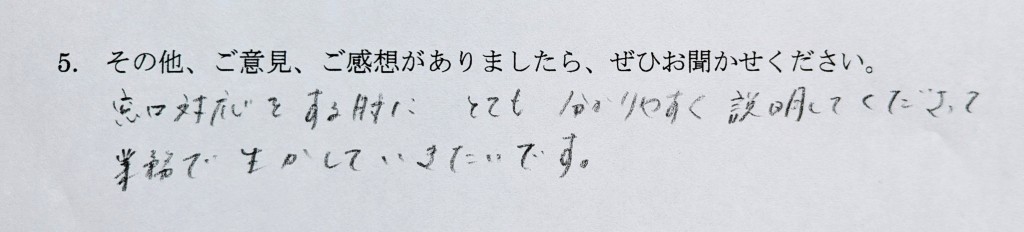 5. その他、ご意見、ご感想がありましたら、ぜひお聞かせください。
窓口対応をする時に とても 分かりやすく 説明してくださって
業務で生かしていきたいです。